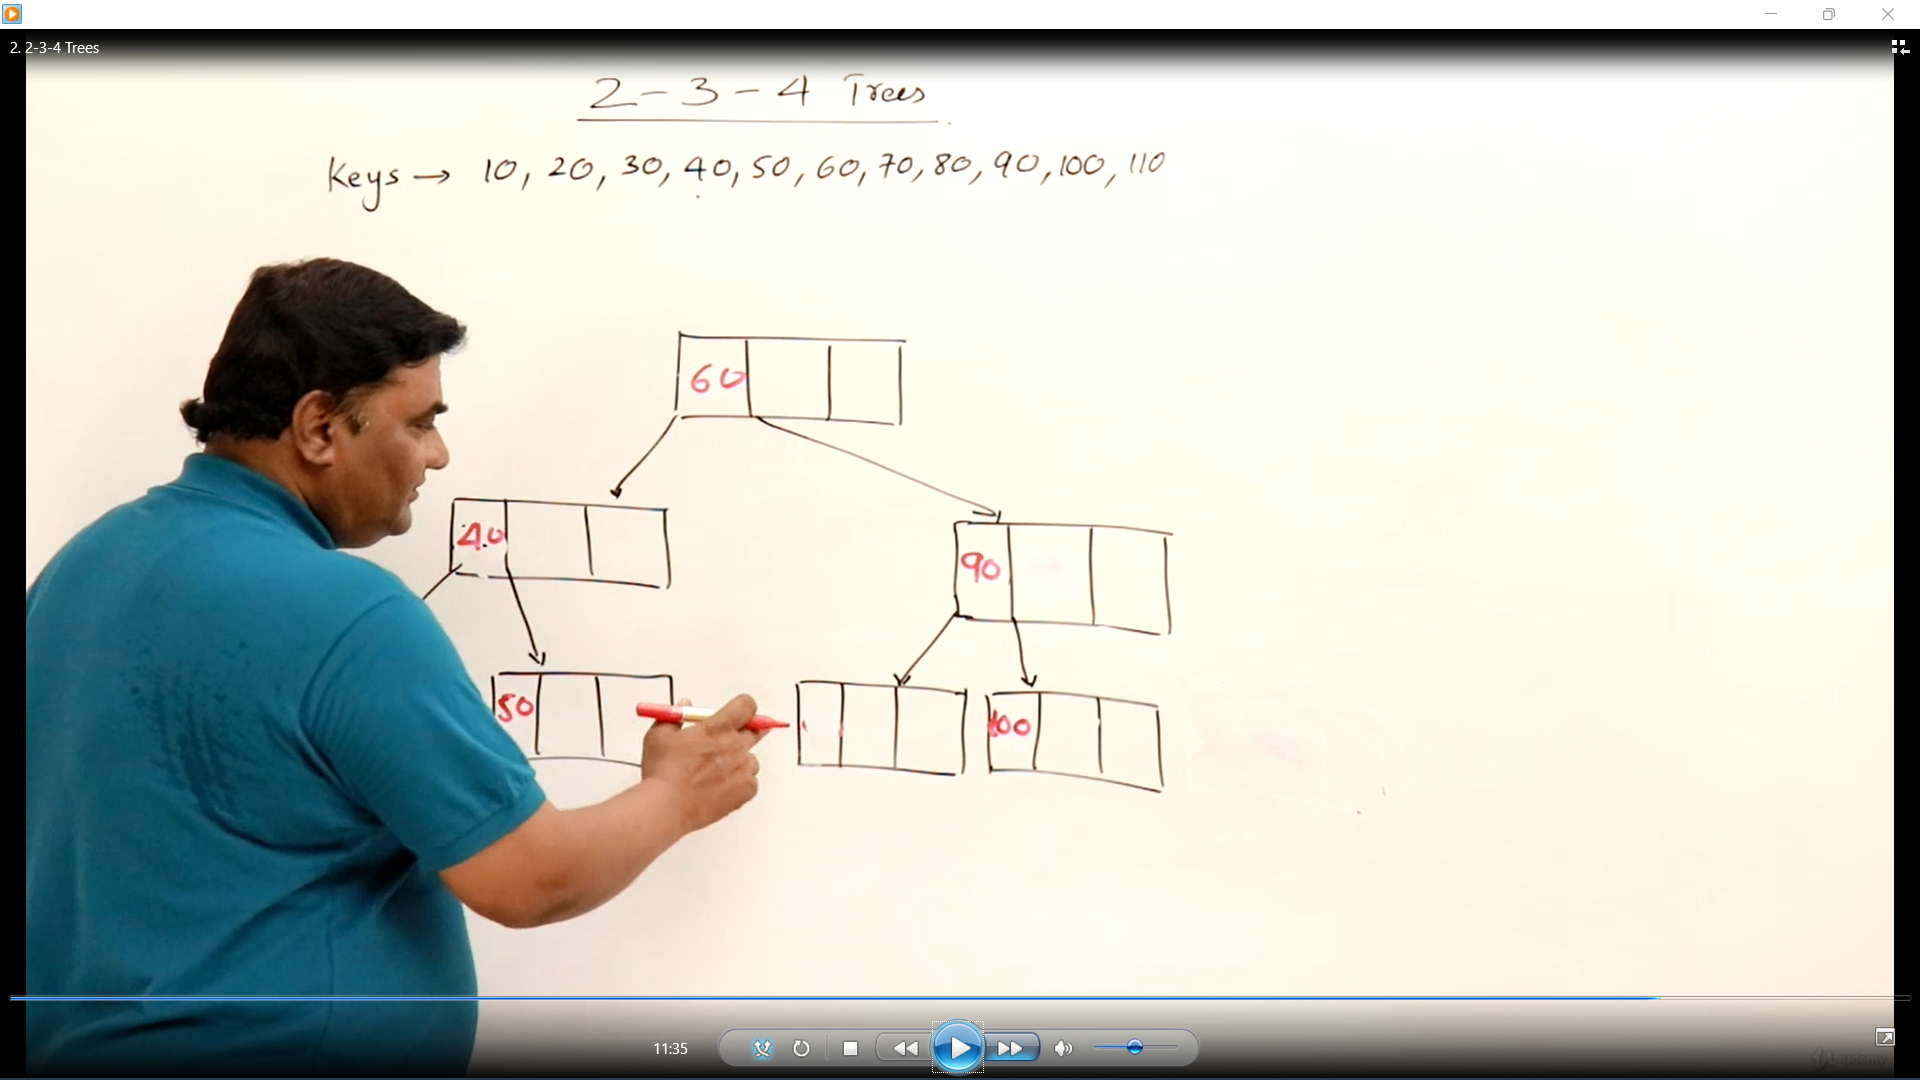 2. 2-3-4 Trees
2-3-4 Trees
Keys → 10, 20, 30, 40, 50, 60, 70, 80, 90, 100, 110
60
40
90
50
100
11:35
Udemy